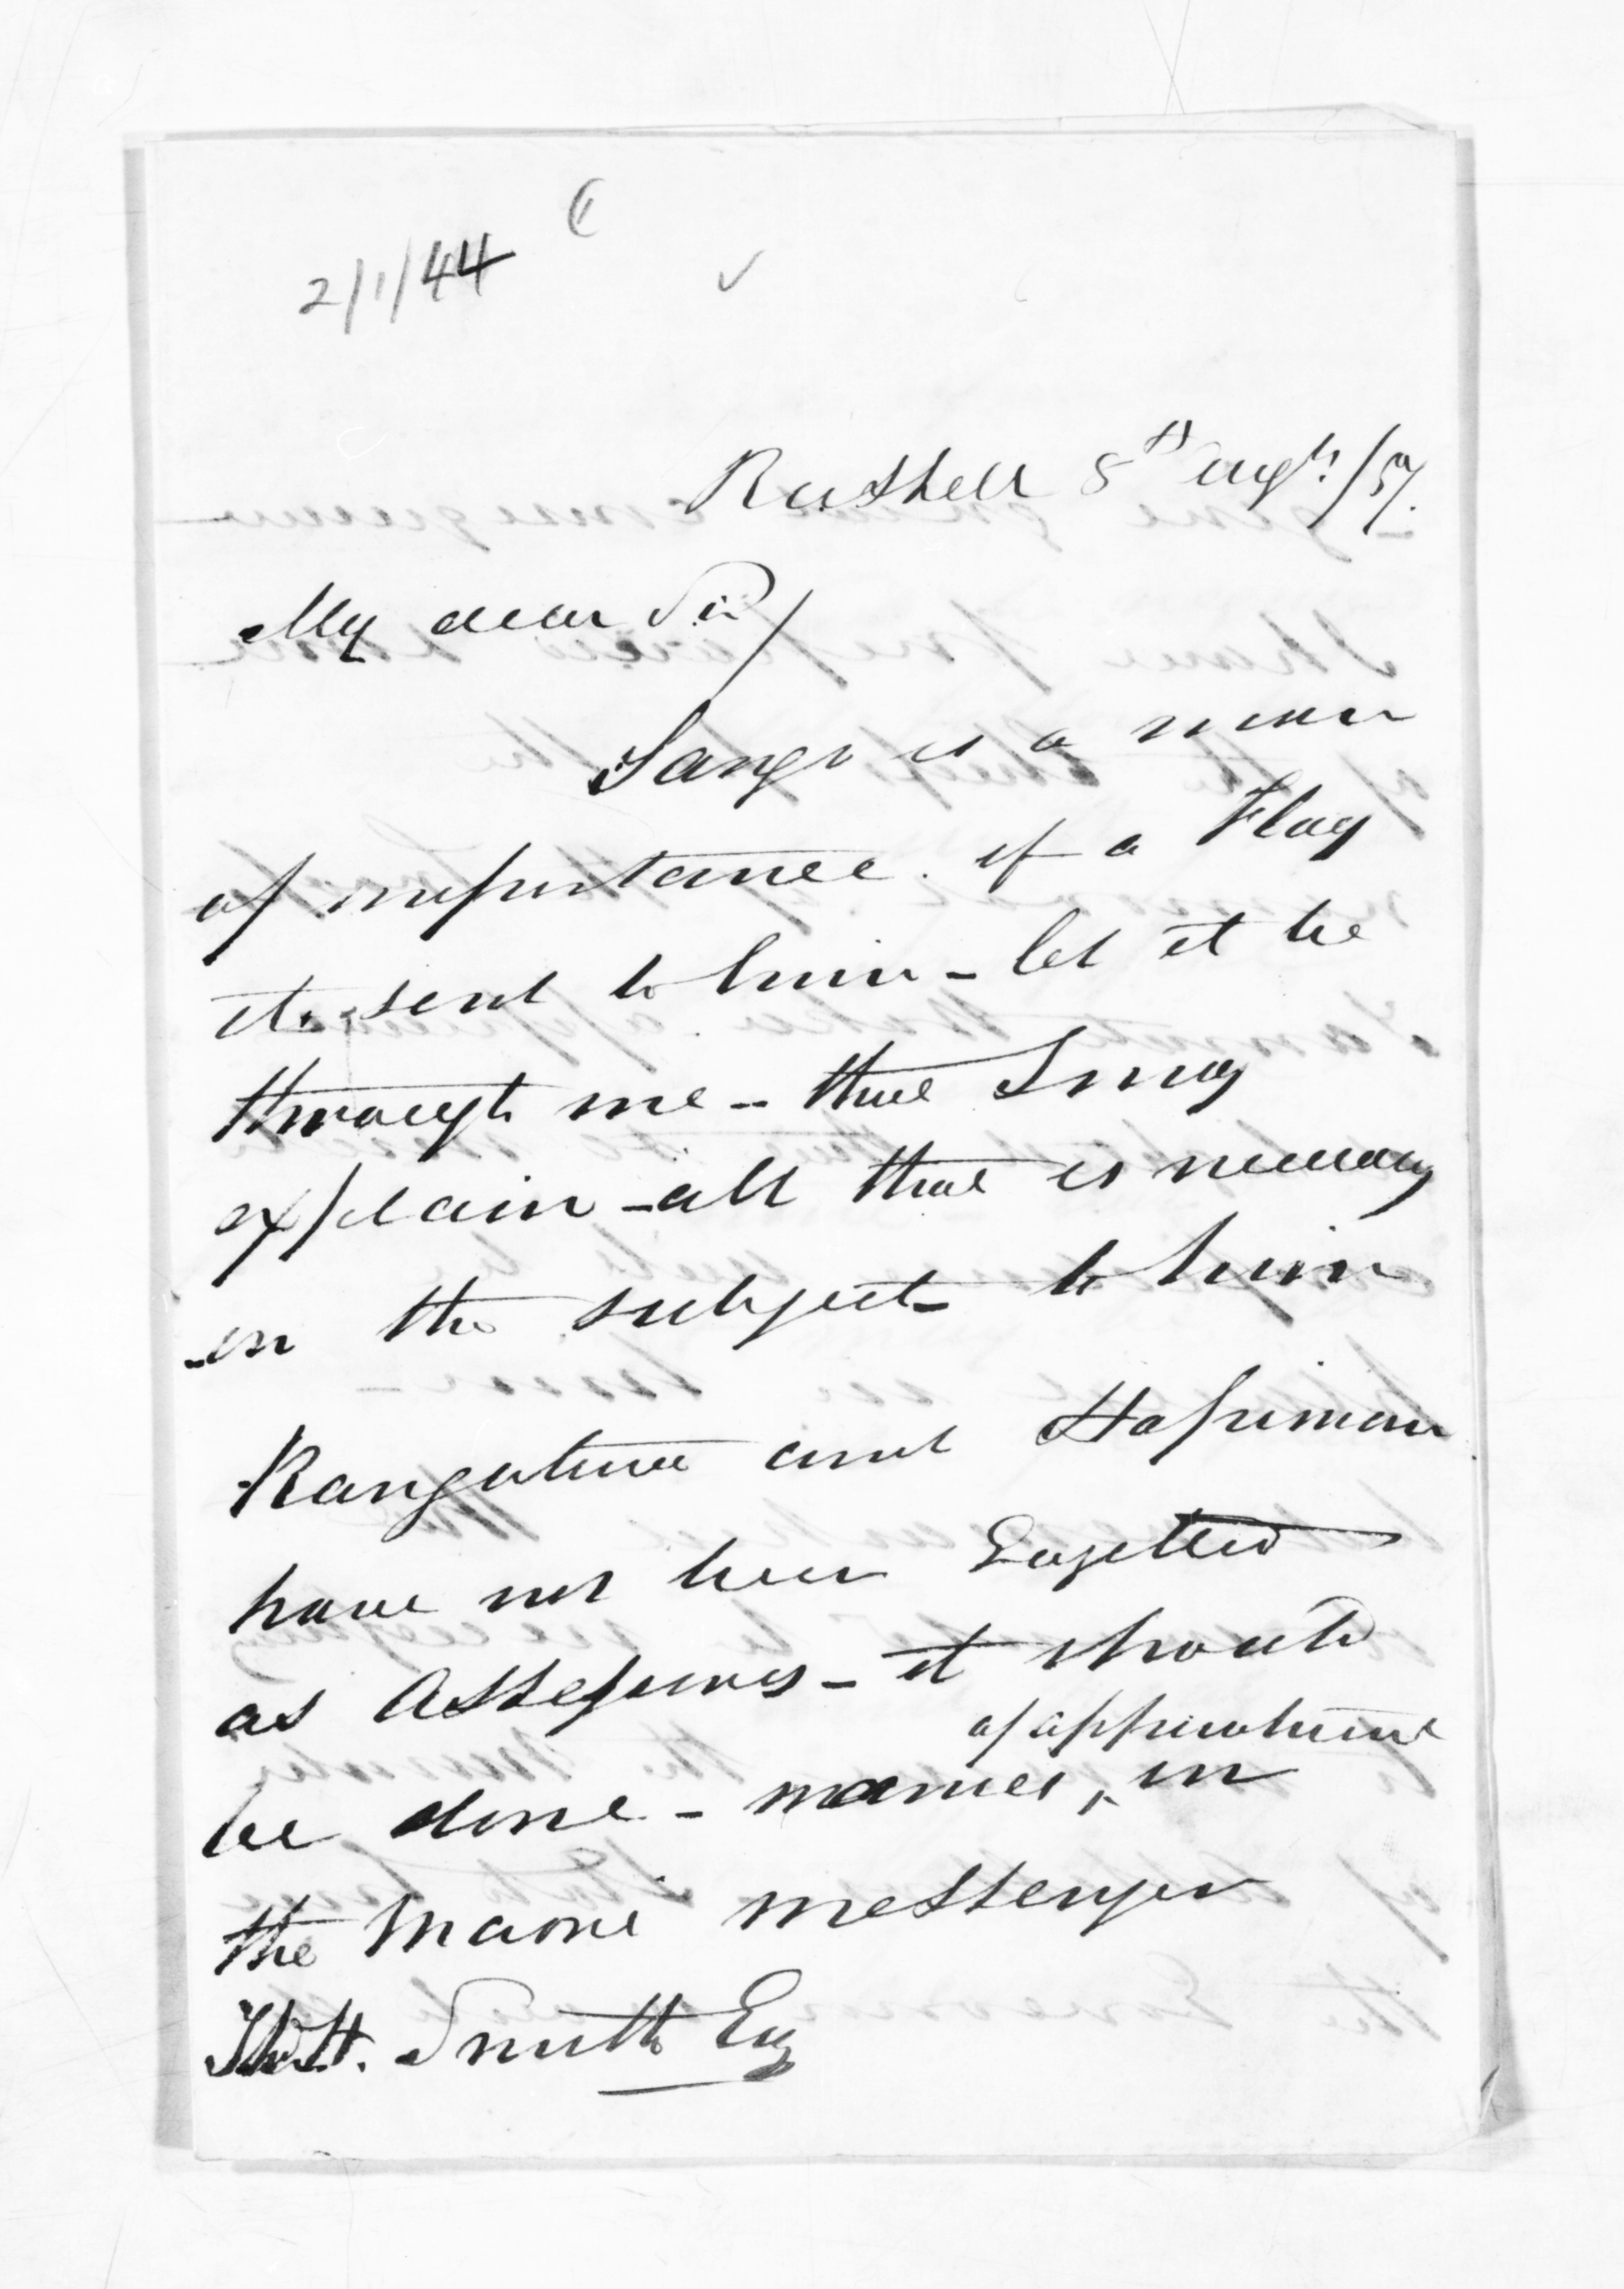 2/1/44
Russell 5th Augt. /57.
My dear Sir/
Tango is a man
of importance. if a Flag
is sent to him - let it be
through me - that I may
explain - all that is necessary
on the subject - to him
Rangatira and Hapimana
have not been Gazetted
as Assessors - it should
of appointment
be done - names, in
the Maori Messenger
Smith Esq